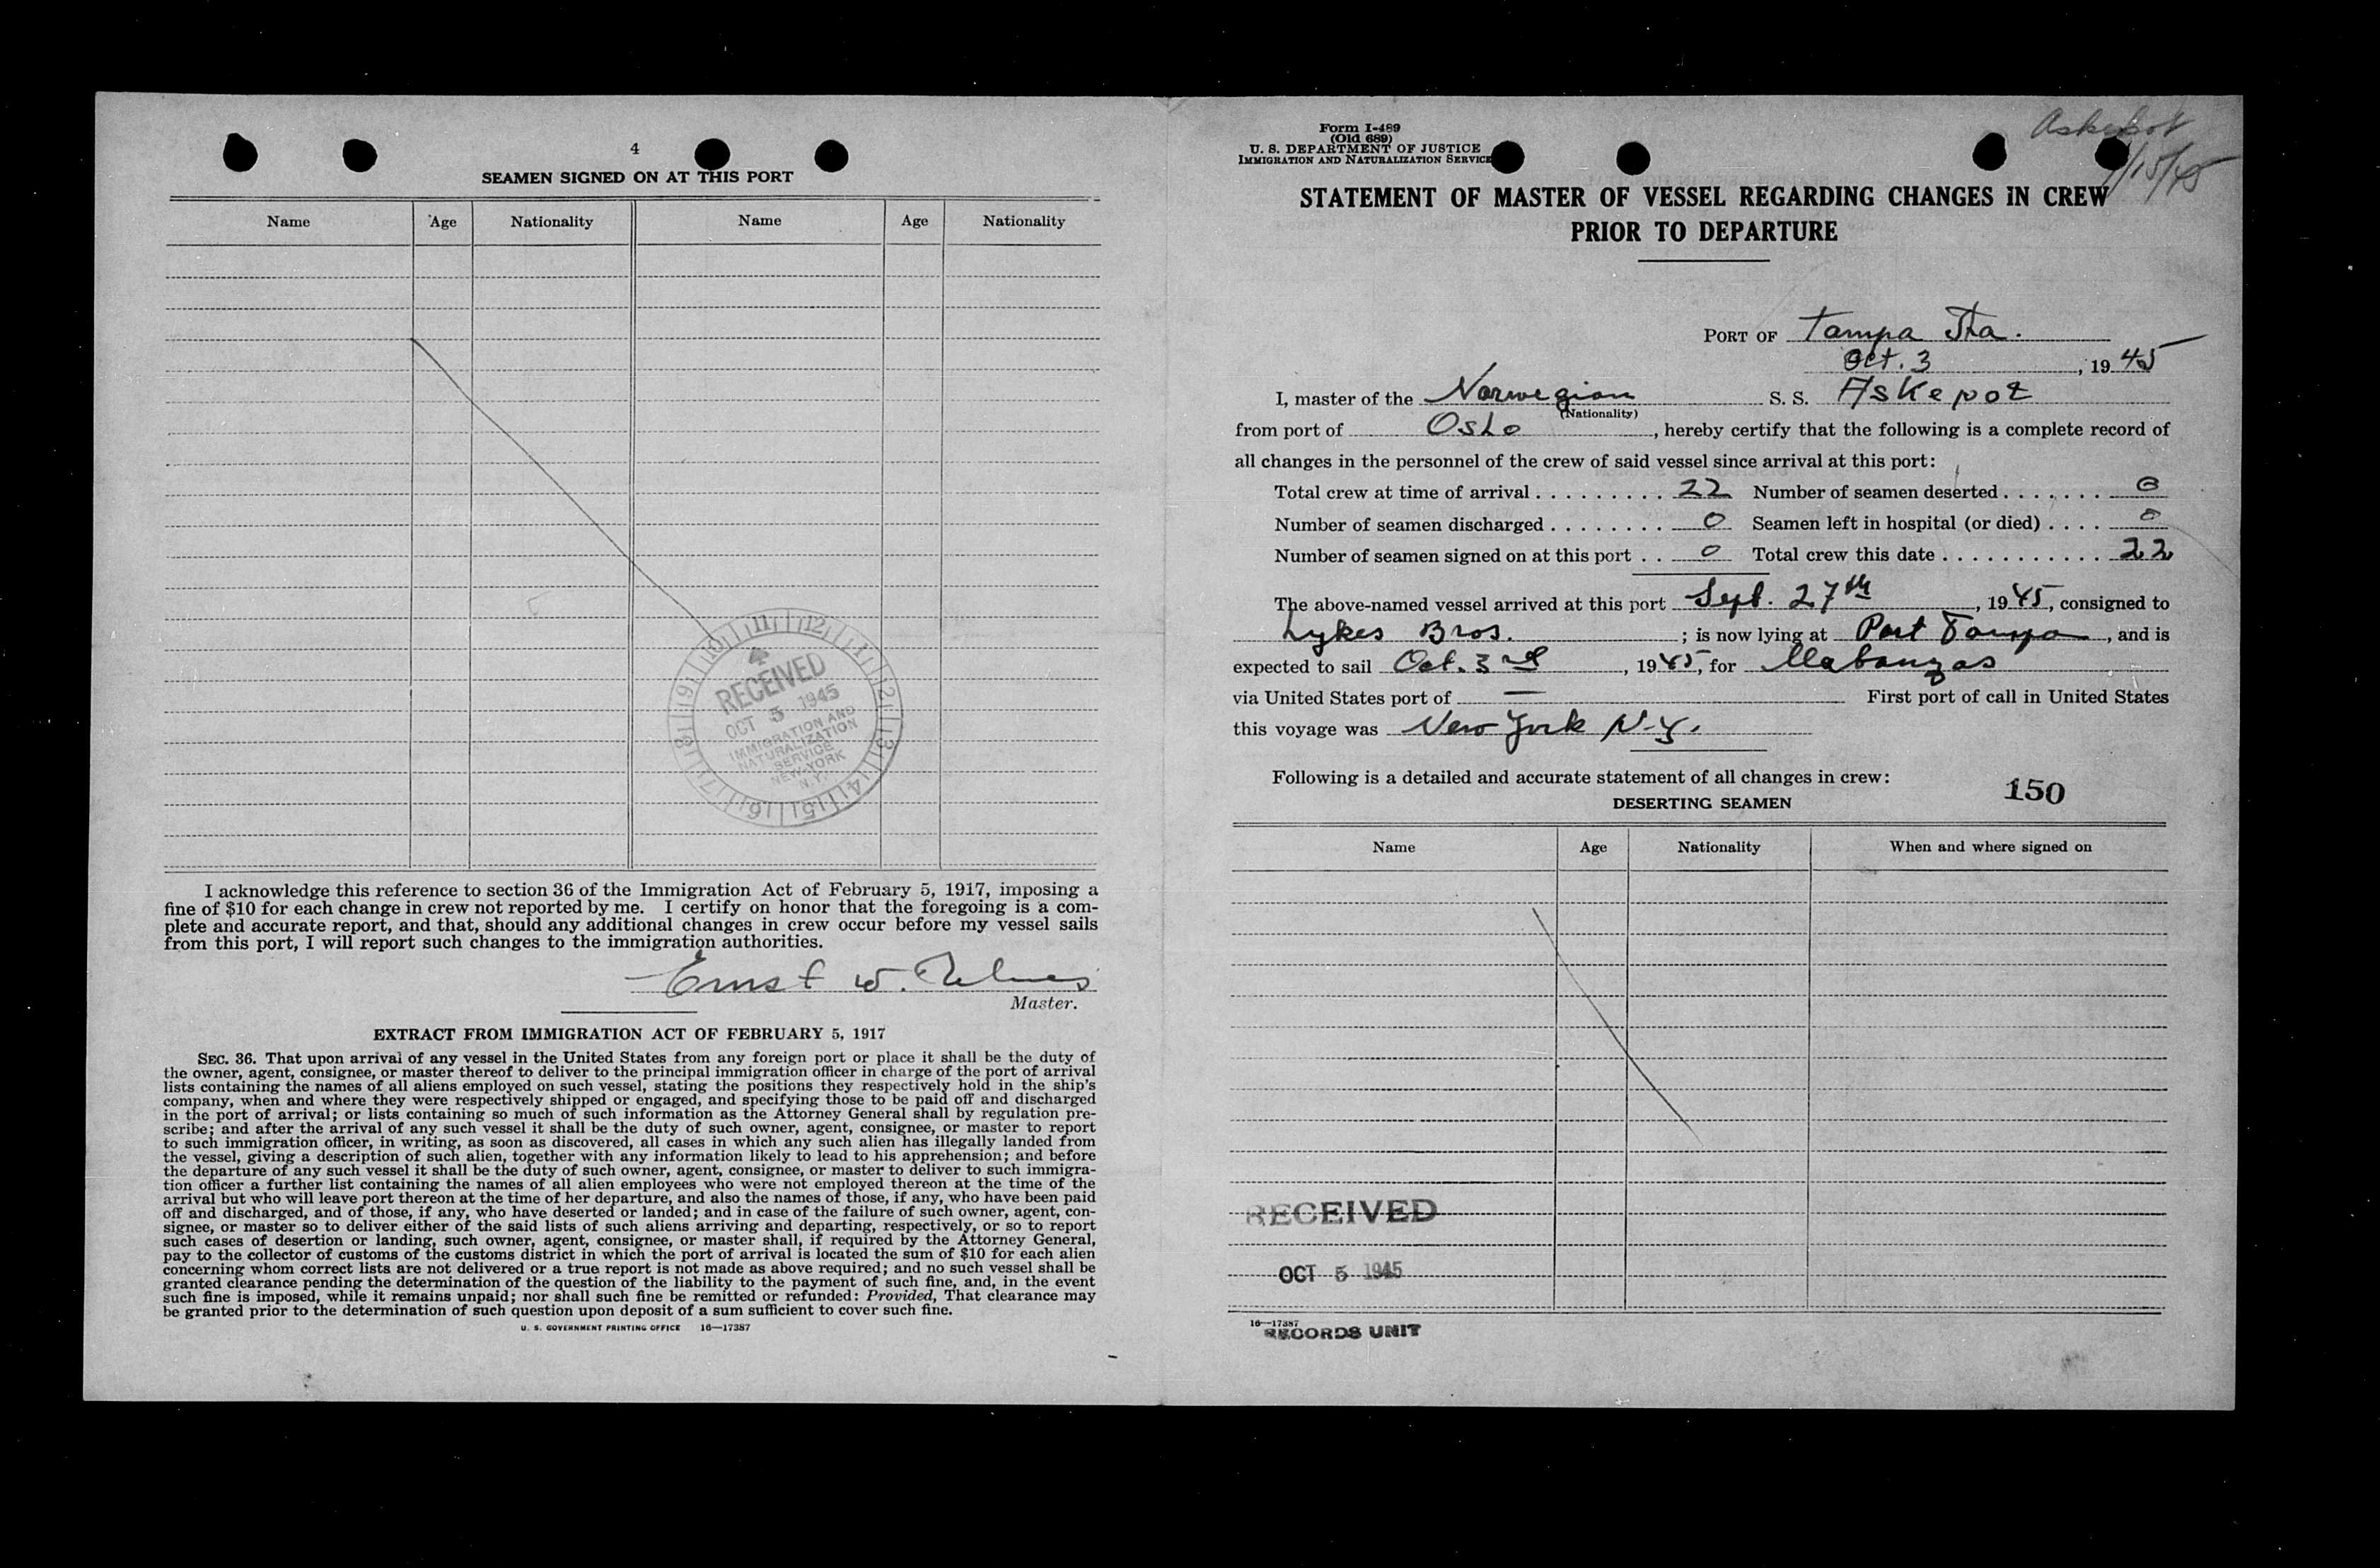 4
SEAMEN SIGNED ON AT THIS PORT
Name Age Nationality Name Age Nationality
RECEIVED
OCT 5 1945
IMMIGRATION AND
NATURALIZATION
SERVICE
NEW YORK
N.Y.
I acknowledge this reference to section 36 of the Immigration Act of February 5, 1917, imposing a
fine of $10 for each change in crew not reported by me. I certify on honor that the foregoing is a com-
plete and accurate report, and that, should any additional changes in crew occur before my vessel sails
from this port, I will report such changes to the immigration authorities.
Ernst W.
Master.
EXTRACT FROM IMMIGRATION ACT OF FEBRUARY 5, 1917
SEC. 36. That upon arrival of any vessel in the United States from any foreign port or place it shall be the duty of
the owner, agent, consignee, or master thereof to deliver to the principal immigration officer in charge of the port of arrival
lists containing the names of all aliens employed on such vessel, stating the positions they respectively hold in the ship's
company, when and where they were respectively shipped or engaged, and specifying those to be paid off and discharged
in the port of arrival; or lists containing so much of such information as the Attorney General shall by regulation pre-
scribe; and after the arrival of any such vessel it shall be the duty of such owner, agent, consignee, or master to report
to such immigration officer, in writing, as soon as discovered, all cases in which any such alien has illegally landed from
the vessel, giving a description of such alien, together with any information likely to lead to his apprehension; and before
the departure of any such vessel it shall be the duty of such owner, agent, consignee, or master to deliver to such immigra-
tion officer a further list containing the names of all alien employees who were not employed thereon at the time of the
arrival but who will leave port thereon at the time of her departure, and also the names of those, if any, who have been paid
off and discharged, and of those, if any, who have deserted or landed; and in case of the failure of such owner, agent, con-
signee, or master so to deliver either of the said lists of such aliens arriving and departing, respectively, or so to report
such cases of desertion or landing, such owner, agent, consignee, or master shall, if required by the Attorney General,
pay to the collector of customs of the customs district in which the port of arrival is located the sum of $10 for each alien
concerning whom correct lists are not delivered or a true report is not made as above required; and no such vessel shall be
granted clearance pending the determination of the question of the liability to the payment of such fine, and, in the event
such fine is imposed, while it remains unpaid; nor shall such fine be remitted or refunded: Provided, That clearance may
be granted prior to the determination of such question upon deposit of a sum sufficient to cover such fine.
U. S. GOVERNMENT PRINTING OFFICE 16—17387
Form I-489
(Old 689)
U. S. DEPARTMENT OF JUSTICE
IMMIGRATION AND NATURALIZATION SERVICE
Askepot
/15/45
STATEMENT OF MASTER OF VESSEL REGARDING CHANGES IN CREW
PRIOR TO DEPARTURE
PORT OF Tampa Fla.
Oct. 3, 1945
I, master of the Norwegian S. S. Askepot
(Nationality)
from port of Oslo, hereby certify that the following is a complete record of
all changes in the personnel of the crew of said vessel since arrival at this port:
Total crew at time of arrival . . . . . . . . . 22 Number of seamen deserted . . . . . . . 0
Number of seamen discharged . . . . . . . . 0 Seamen left in hospital (or died) . . . . 0
Number of seamen signed on at this port . . 0 Total crew this date . . . . . . . . . . . . 22
The above-named vessel arrived at this port Sept. 27th, 1945, consigned to
Lykes Bros. ; is now lying at Port Tampa, and is
expected to sail Oct. 3rd, 1945, for
via United States port of — First port of call in United States
this voyage was New York N.Y.
Following is a detailed and accurate statement of all changes in crew:
150
DESERTING SEAMEN
Name Age Nationality When and where signed on
RECEIVED
OCT 5 1945
16—17387
RECORDS UNIT